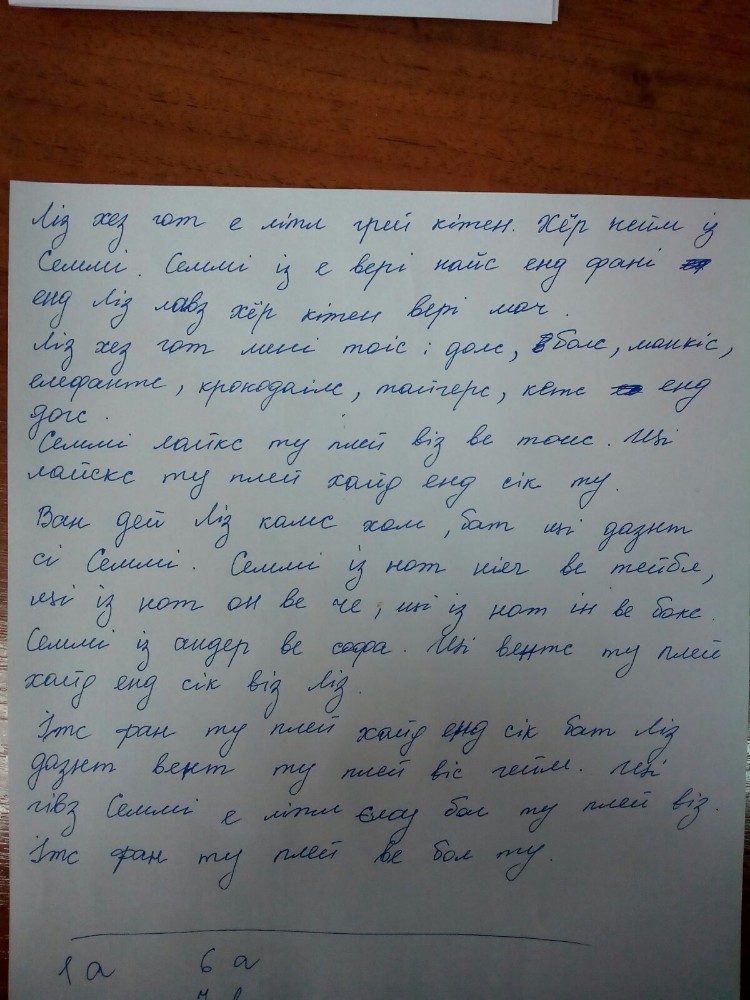 Ліз хез гот е літл грей кітен. Хёр нейм із
Семмі. Семмі із е вері найс енд фані
енд Ліз лавз хёр кітен вері мач.
Ліз хез гот мені тоіс: долс, болс, манкіс,
елефантс, крокодаілс, тайгерс, кетс енд
догс.
Семмі лайкс ту плей віз ве тоис. Ші
лайскс ту плей хайд енд сік ту.
Ван дей Ліз камс хом, бат ші дазнт
сі Семмі. Семмі із нот ніер ве тейбл,
ші із нот он ве че, ші із нот ін ве бокс.
Семмі із андер ве софа. Ші вентс ту плей
хайд енд сік віз Ліз.
Ітс фан ту плей хайд енд сік бат Ліз
дазнт вент ту плей віс гейм. Ші
гівз Семмі е літл єлоу бол ту плей віз.
Ітс фан ту плей ве бол ту.
1 а 6 а